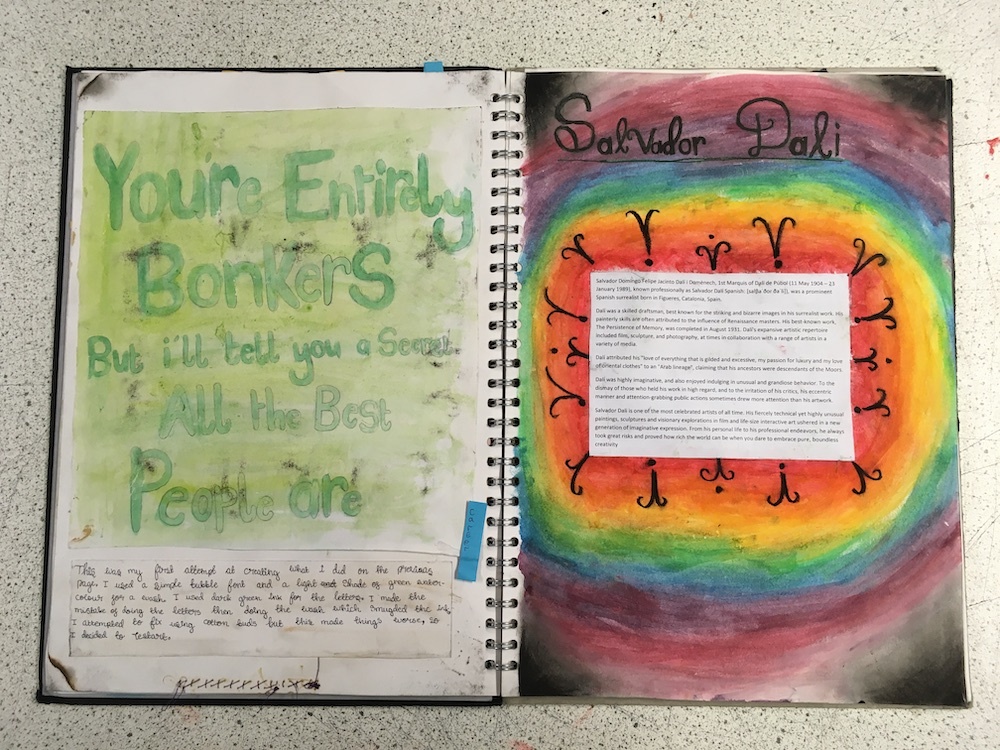 Youre Entirely
Bonkers
But i'll tell you a Secret
All the Best
People are
This was my first attempt at creating what I did on the previous
page. I used a simple bubble font and a light shade of green water-
colour for a wash. I used dark green ink for the letters. I made the
mistake of doing the letters then doing the wash which smugded the ink
I attempted to fix using cotton buds but this made things worse, so
I decided to restart.
Salvador Dali
Salvador Domingo Felipe Jacinto Dalí i Domènech, 1st Marquis of Dalí de Púbol (11 May 1904 – 23
January 1989), known professionally as Salvador Dalí Spanish: was a prominent
Spanish surrealist born in Figueres, Catalonia, Spain.
Dalí was a skilled draftsman, best known for the striking and bizarre images in his surrealist work. His
painterly skills are often attributed to the influence of Renaissance masters. His best-known work,
The Persistence of Memory, was completed in August 1931. Dalí's expansive artistic repertoire
included film, sculpture, and photography, at times in collaboration with a range of artists in a
variety of media.
Dalí attributed his "love of everything that is gilded and excessive, my passion for luxury and my love
of oriental clothes" to an "Arab lineage", claiming that his ancestors were descendants of the Moors.
Dalí was highly imaginative, and also enjoyed indulging in unusual and grandiose behavior. To the
dismay of those who held his work in high regard, and to the irritation of his critics, his eccentric
manner and attention-grabbing public actions sometimes drew more attention than his artwork.
Salvador Dali is one of the most celebrated artists of all time. His fiercely technical yet highly unusual
paintings, sculptures and visionary explorations in film and life-size interactive art ushered in a new
generation of imaginative expression. From his personal life to his professional endeavors, he always
took great risks and proved how rich the world can be when you dare to embrace pure, boundless
creativity